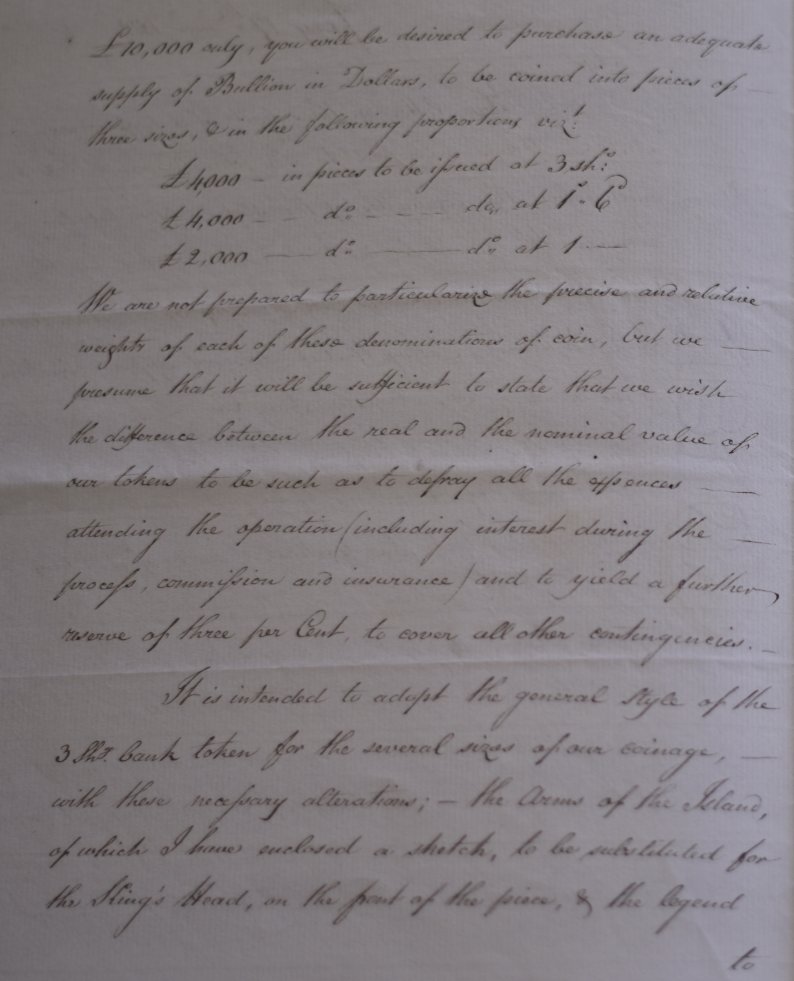 £10,000 only, you will be desired to purchase an adequate
supply of Bullion in Dollars, to be coined into pieces of —
three sizes, & in the following proportions vizt:
£4,000 — in pieces to be issued at 3 sh:
£4,000 — — do — — — do at 1s. 6d
£2,000 — do — do at 1 —
We are not prepared to particularize the precise and relative
weights of each of these denominations of coin, but we —
presume that it will be sufficient to state that we wish
the difference between the real and the nominal value of
our tokens to be such as to defray all the expences —
attending the operation (including interest during the —
process, commission and insurance) and to yield a further
reserve of three per Cent, to cover all other contingencies. —
It is intended to adopt the general style of the
3 Shs. bank token for the several sizes of our coinage, —
with these necessary alterations; — the Arms of the Island,
of which I have enclosed a sketch, to be substituted for
the King's Head, on the front of the piece, & the legend
to